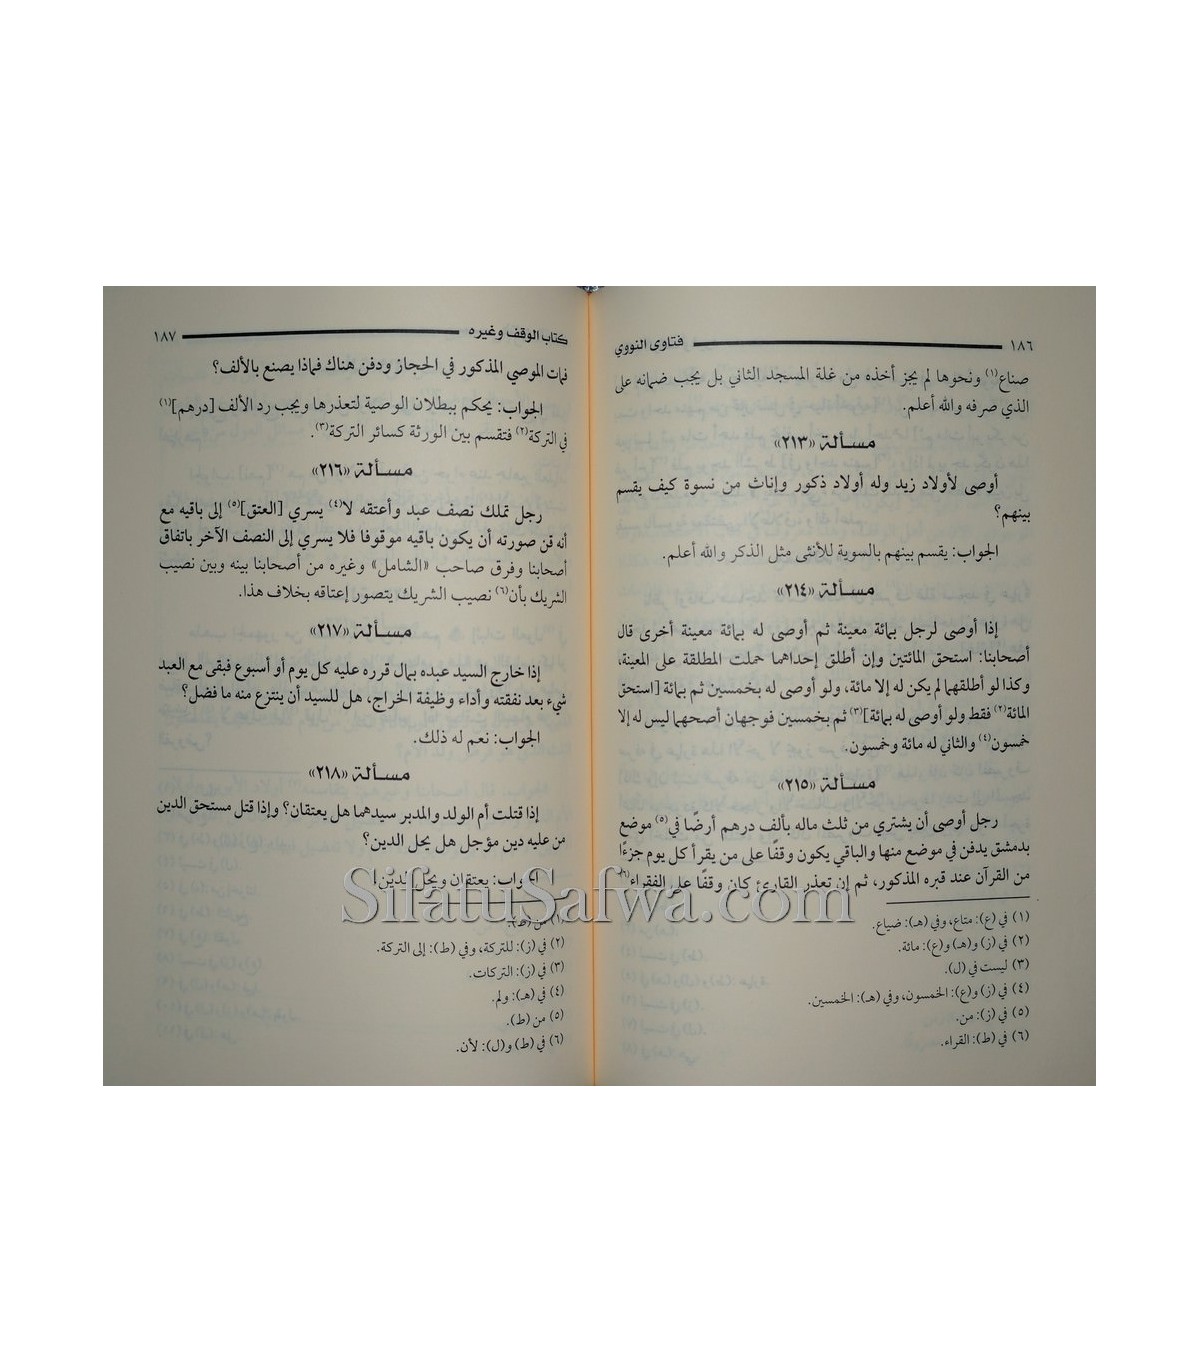 ١٨٦ فتاوى النووي
صناع(١) ونحوها لم يجز أخذه من غلة المسجد الثاني بل يجب ضمانه على
الذي صرفه والله أعلم.
مسألة «٢١٣»
أوصى لأولاد زيد وله أولاد ذكور وإناث من نسوة كيف يقسم
بينهم؟
الجواب: يقسم بينهم بالسوية للأنثى مثل الذكر والله أعلم.
مسألة «٢١٤»
إذا أوصى لرجل بمائة معينة ثم أوصى له بمائة معينة أخرى قال
أصحابنا: استحق المائتين وإن أطلق إحداهما حملت المطلقة على المعينة،
وكذا لو أطلقهما لم يكن له إلا مائة، ولو أوصى له بخمسين ثم بمائة [استحق
المائة(٢) فقط ولو أوصى له بمائة](٣) ثم بخمسين فوجهان أصحهما ليس له إلا
خمسون(٤) والثاني له مائة وخمسون.
مسألة «٢١٥»
رجل أوصى أن يشتري من ثلث ماله بألف درهم أرضًا في(٥) موضع
بدمشق يدفن في موضع منها والباقي يكون وقفًا على من يقرأ كل يوم جزءًا
من القرآن عند قبره المذكور، ثم إن تعذر القارئ كان وقفًا على الفقراء(٦)
(١) في (ع): متاع، وفي (هـ): ضياع.
(٢) في (ز) و(هـ) و(ع): مائة.
(٣) ليست في (ل).
(٤) في (ز) و(ع): الخمسون، وفي (هـ): الخمسين.
(٥) في (ز): من.
(٦) في (ط): القراء.
كتاب الوقف وغيره ١٨٧
فمات الموصي المذكور في الحجاز ودفن هناك فماذا يصنع بالألف؟
الجواب: يحكم ببطلان الوصية لتعذرها ويجب رد الألف [درهم](١)
في التركة(٢) فتقسم بين الورثة كسائر التركة(٣).
مسألة «٢١٦»
رجل تملك نصف عبد وأعتقه لا(٤) يسري [العتق](٥) إلى باقيه مع
أنه قن صورته أن يكون باقيه موقوفا فلا يسري إلى النصف الآخر باتفاق
أصحابنا وفرق صاحب «الشامل» وغيره من أصحابنا بينه وبين نصيب
الشريك بأن(٦) نصيب الشريك يتصور إعتاقه بخلاف هذا.
مسألة «٢١٧»
إذا خارج السيد عبده بمال قرره عليه كل يوم أو أسبوع فبقى مع العبد
شيء بعد نفقته وأداء وظيفة الخراج، هل للسيد أن ينتزع منه ما فضل؟
الجواب: نعم له ذلك.
مسألة «٢١٨»
إذا قتلت أم الولد والمدبر سيدهما هل يعتقان؟ وإذا قتل مستحق الدين
من عليه دين مؤجل هل يحل الدين؟
الجواب: يعتقان ويحل الدين.
(١) من (ط).
(٢) في (ز): للتركة، وفي (ط): إلى التركة.
(٣) في (ز): التركات.
(٤) في (هـ): ولم.
(٥) من (ط).
(٦) في (ط) و(ل): لأن.
SifatuSafwa.com